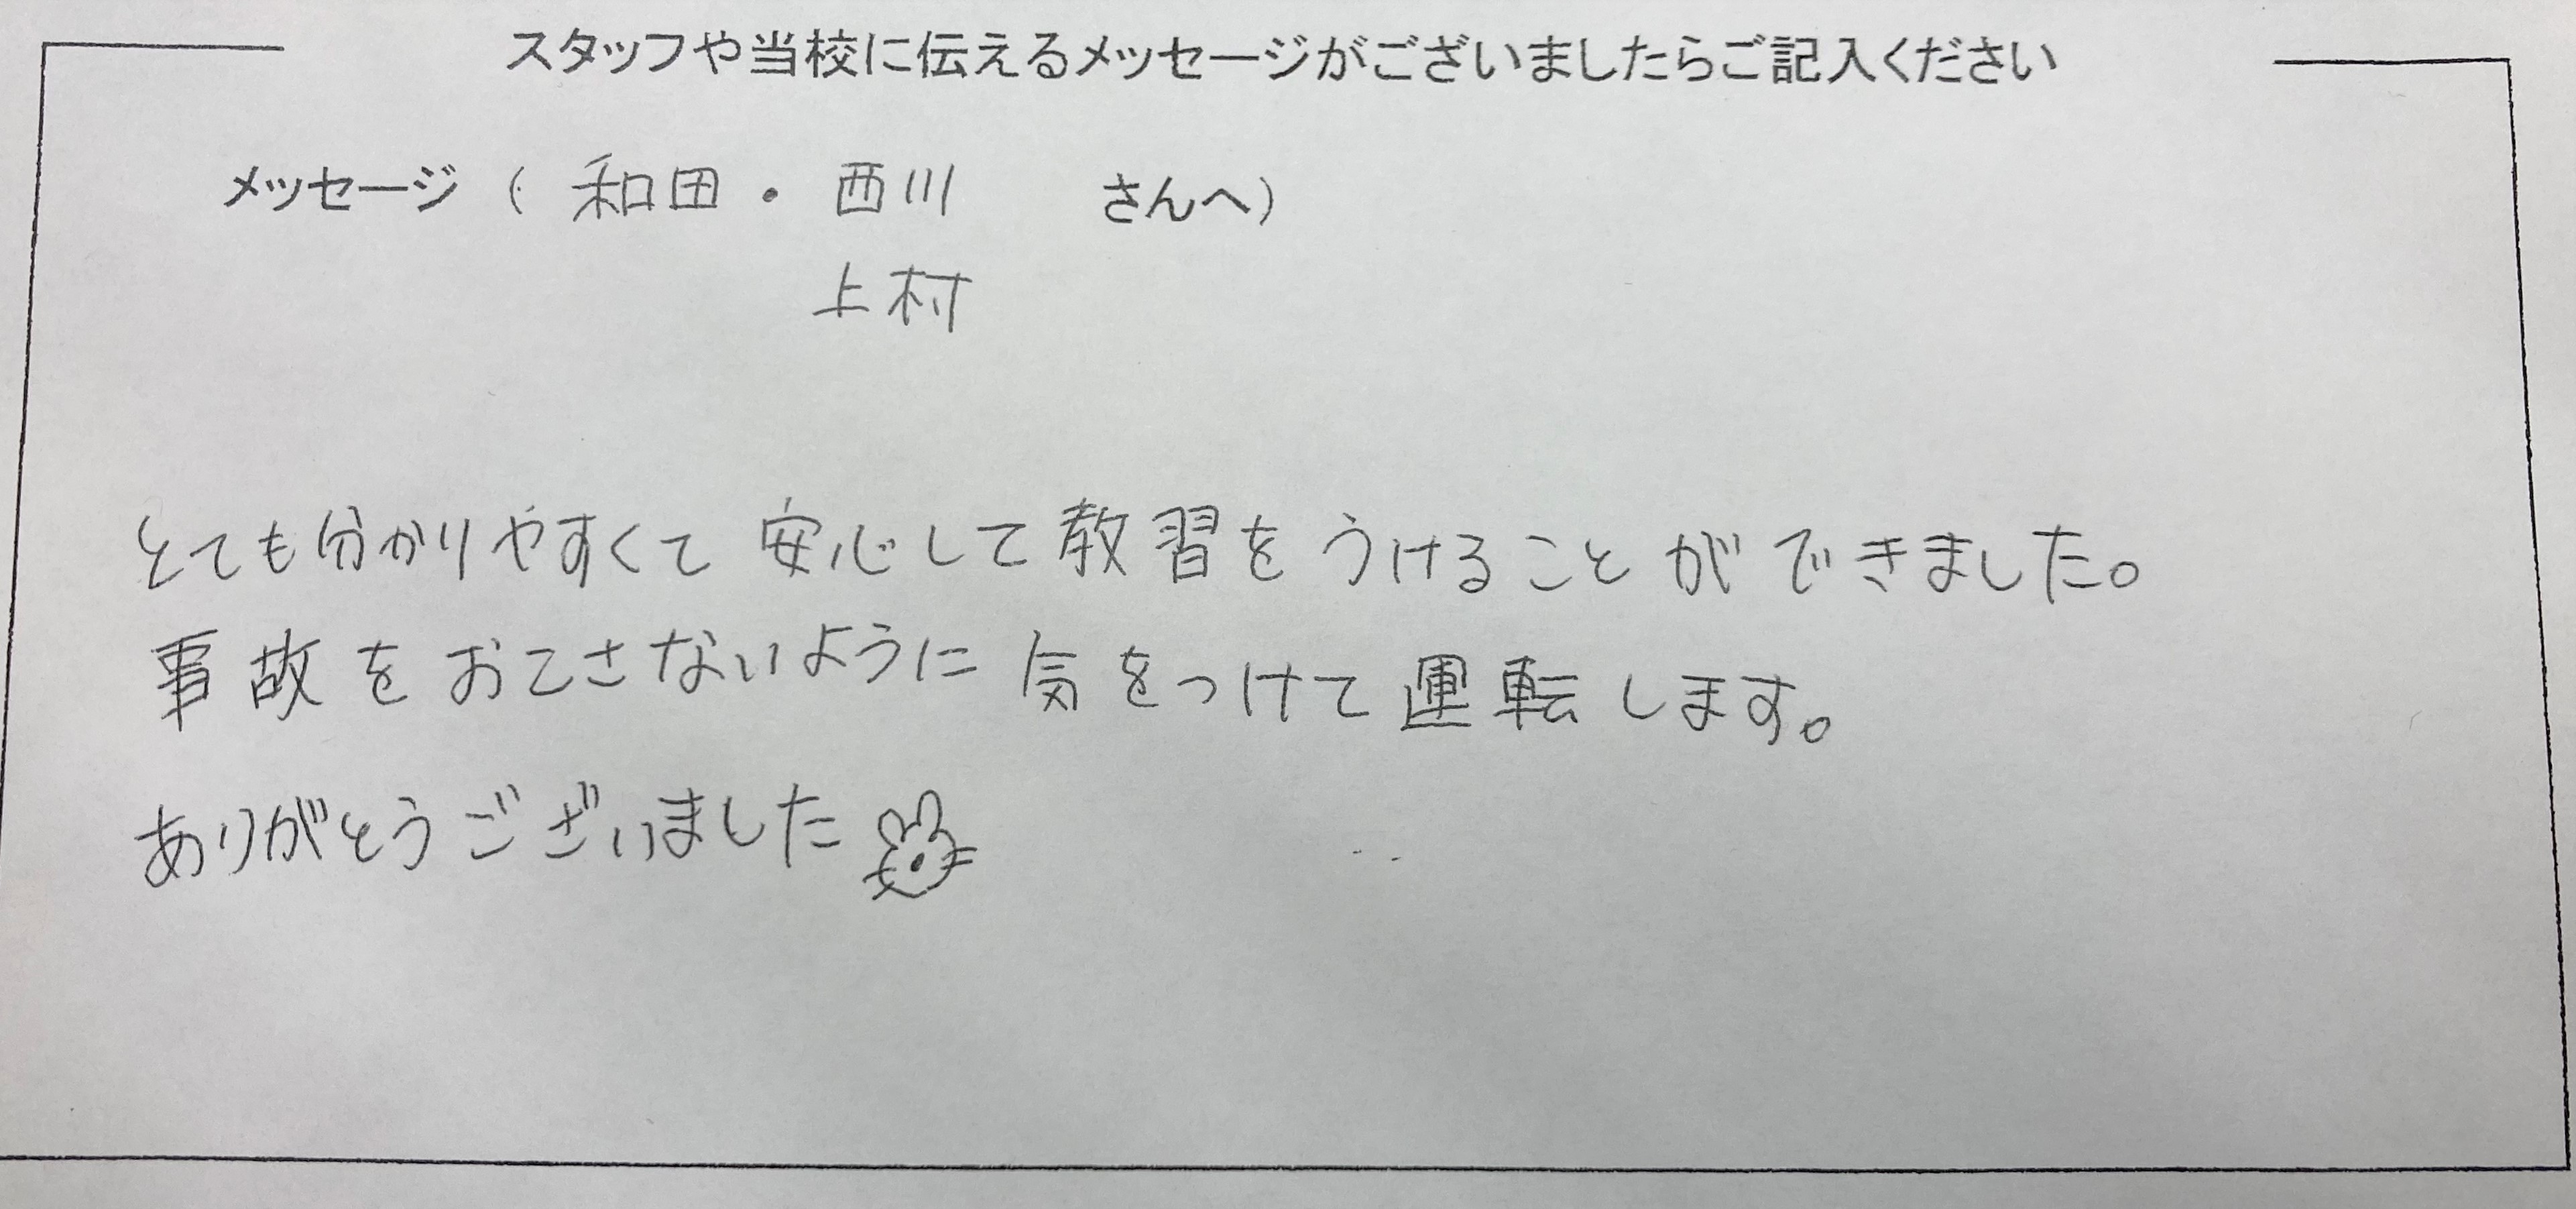 スタッフや当校に伝えるメッセージがございましたらご記入ください
メッセージ（ 和田・西川 さんへ）
上村
とても分かりやすくて安心して教習をうけることができました。
事故をおこさないように気をつけて運転します。
ありがとうございました